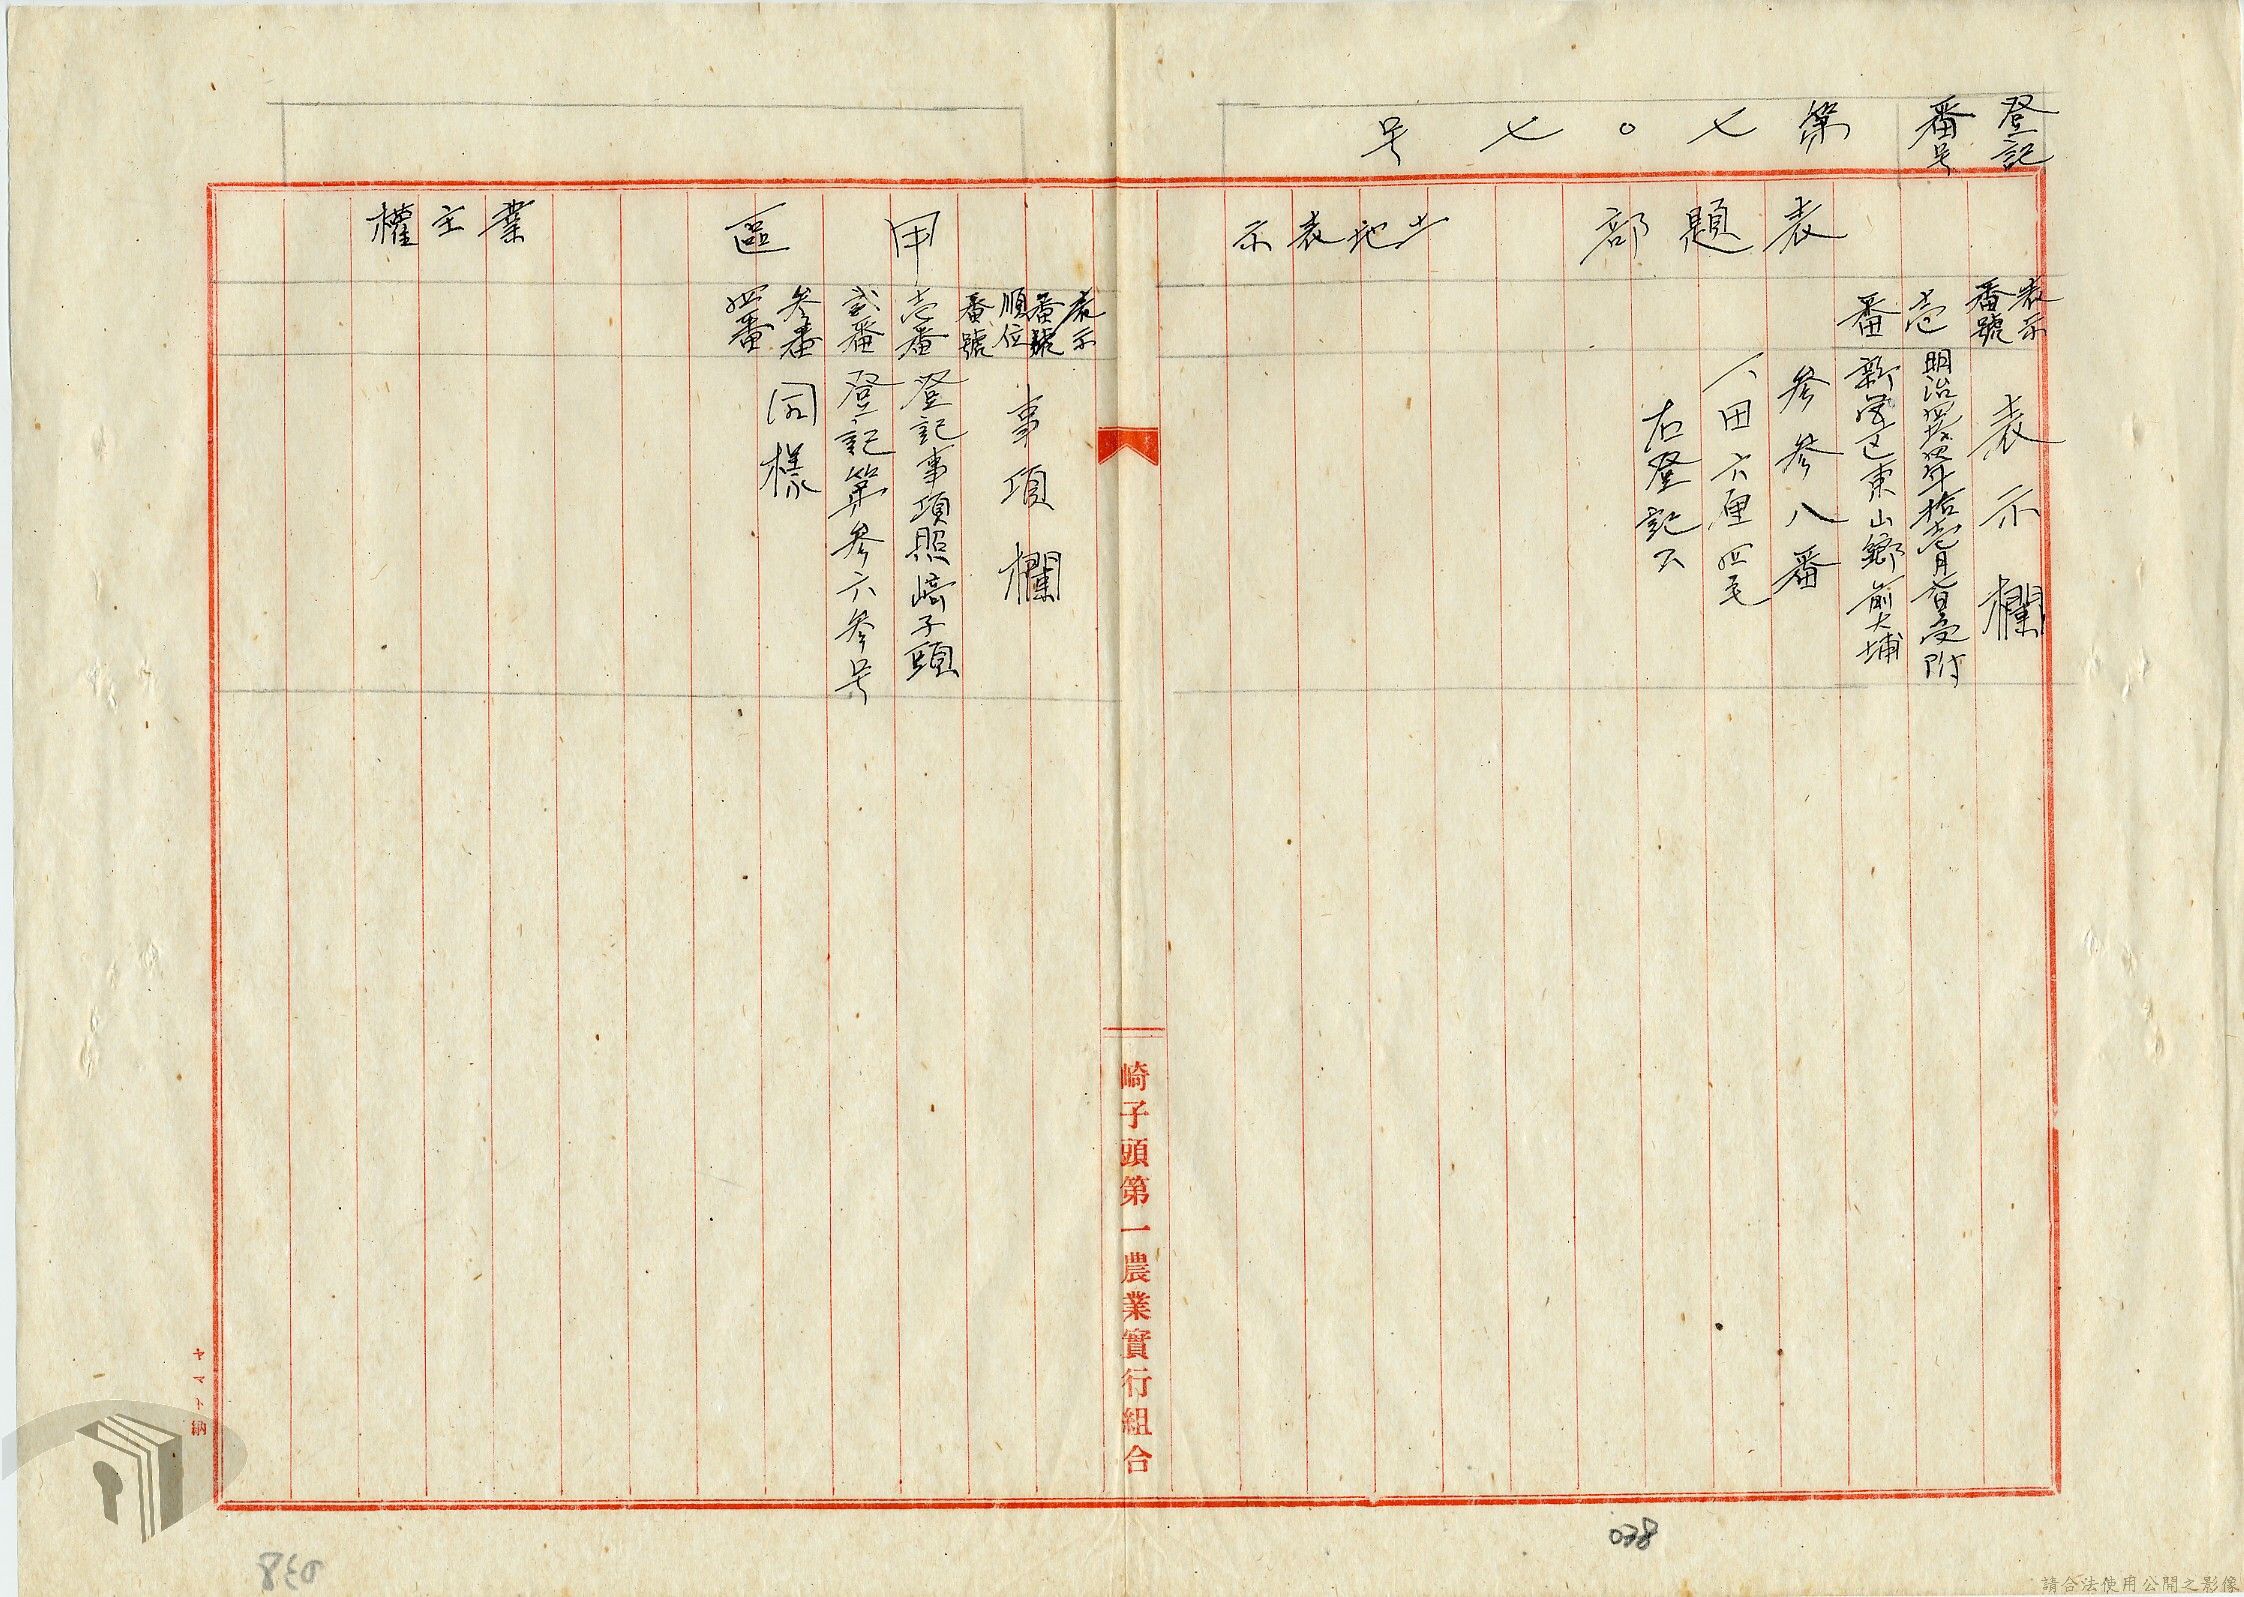 登記
番号
第七〇七号
表題部
土地表示
表示
番號
表示欄
壱
番
明治四拾四年拾壱月
受附
新
区東山鄉前大埔
参参八番
一、田六厘四毛
右登記ス
甲區
業主權
表示
番號
順位
番號
事項欄
壱番
登記事項照﨑子頭
弐番
登記第参六参号
参番
同樣
四番
崎子頭第一農業實行組合
ヤマト納
038
038
請合法使用公開之影像